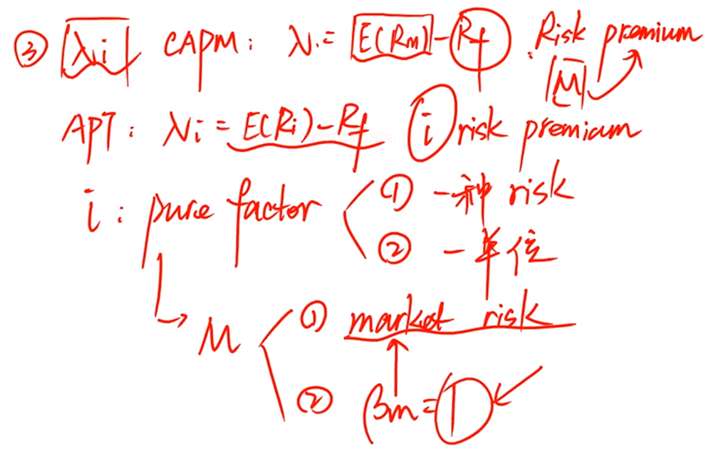 ③ λi CAPM: λ = E(Rm) - Rf . Risk premium
M
APT: λi = E(Ri) - Rf i risk premium
i: pure factor ① 一种 risk
② 一单位
→ M ① market risk
② βm = 1